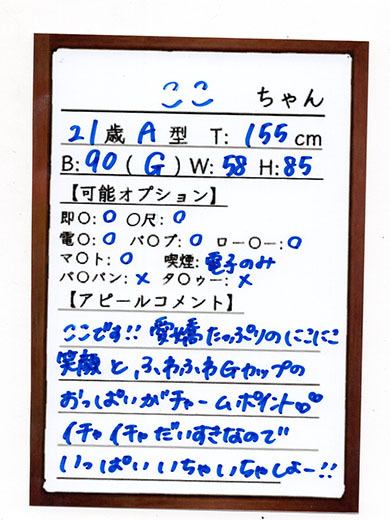 ここ ちゃん
21歳 A型 T:155cm
B:90(G)W:58 H:85
【可能オプション】
即〇:O 〇尺:O
電〇:O バ〇ブ:O ロー〇ー:O
マ〇ト:O 喫煙:電子のみ
パ〇パン:× タ〇ゥー:×
【アピールコメント】
ここです!!愛嬌たっぷりのにこにこ
笑顔と、ふわふわGカップの
おっぱいがチャームポイント♡♡
イチャイチャだいすきなので
いっぱいいちゃいちゃしよー!!